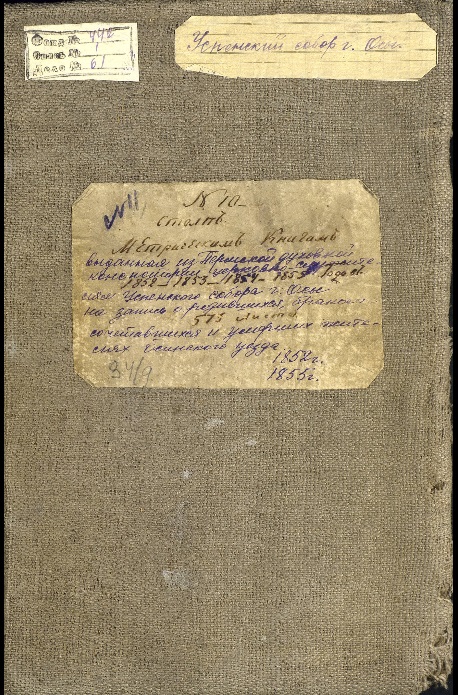 Фонд № 472
Опись №
Дело № 61
Успенский собор г. Осы.
№ 11
№ 10-
столпъ
Метрическимъ Книгамъ
выданная из Пермской духовной
консистории
1852 – 1853 – 1854 – 1855 Годовъ
Успенского собора г. Осы
на запись о родившихся, браком
573 листа
сочетавшихся и умерших жите-
лях Осинского уезда
1852г.
1855г.
34/9